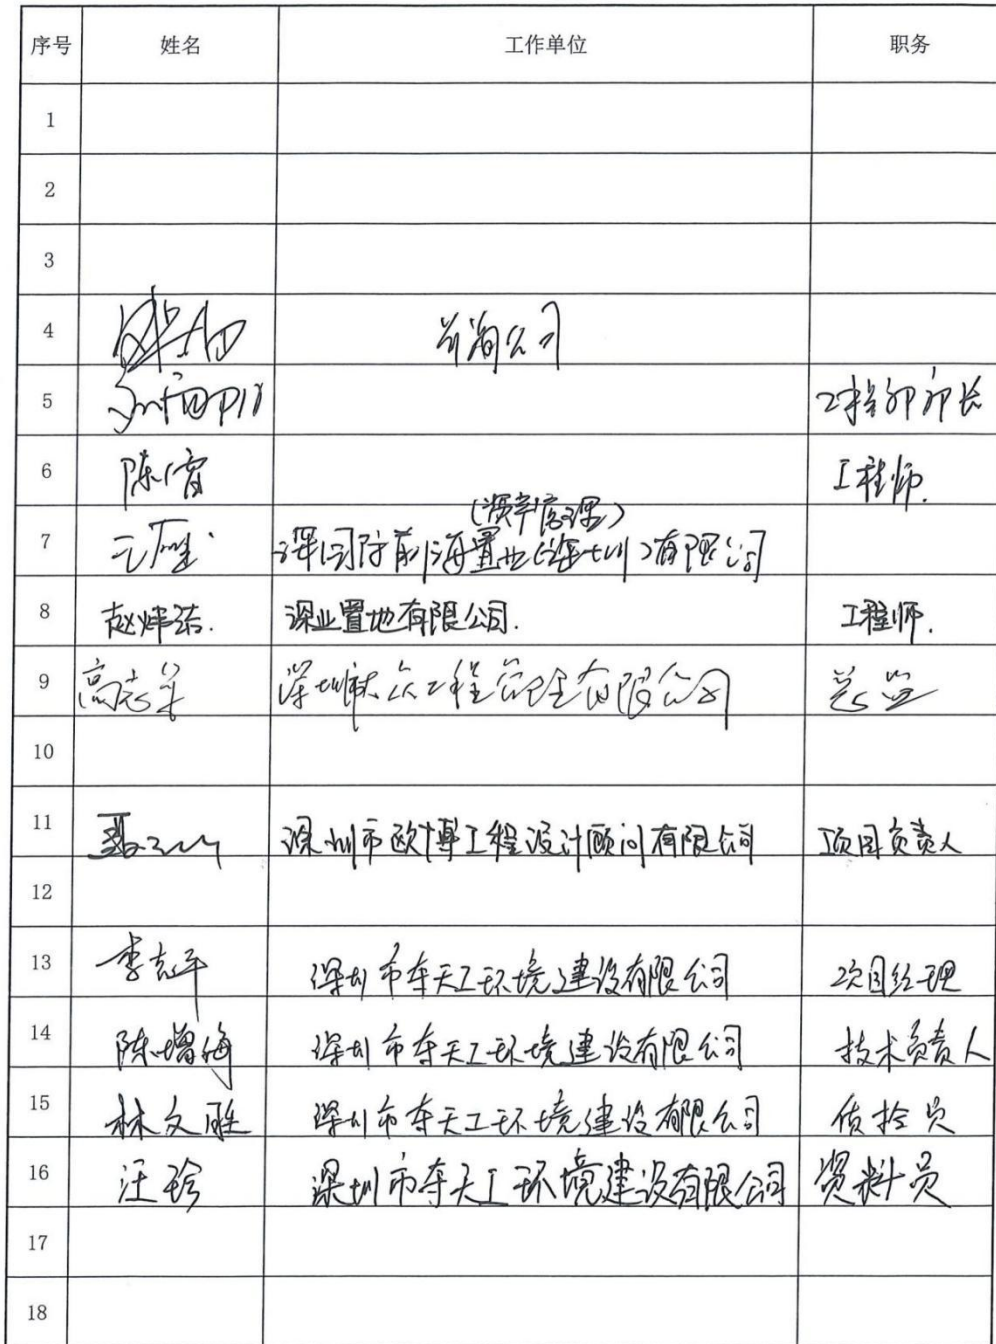 序号 姓名 工作单位 职务
1
2
3
4 公司
5 工程部部长
6 陈 工程师.
(资产管理)
7 深国际前海置业(深圳)有限公司
8 赵炜洁. 深业置地有限公司. 工程师.
9 高志 深圳 众工程管理有限公司 总监
10
11 深圳市欧博工程设计顾问有限公司 项目负责人
12
13 李志平 深圳市夺天工环境建设有限公司 项目经理
14 陈增海 深圳市夺天工环境建设有限公司 技术负责人
15 林文胜 深圳市夺天工环境建设有限公司 质检员
16 汪珍 深圳市夺天工环境建设有限公司 资料员
17
18